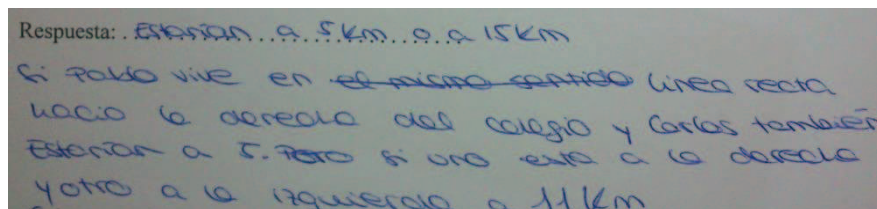 Respuesta: Estarían a 5 km o a 15 Km
Si Pablo vive en el mismo sentido linea recta
hacia la derecha del colegio y Carlos también
Estarían a 5. Pero si uno esta a la derecha
y otro a la izquierda a 11 Km